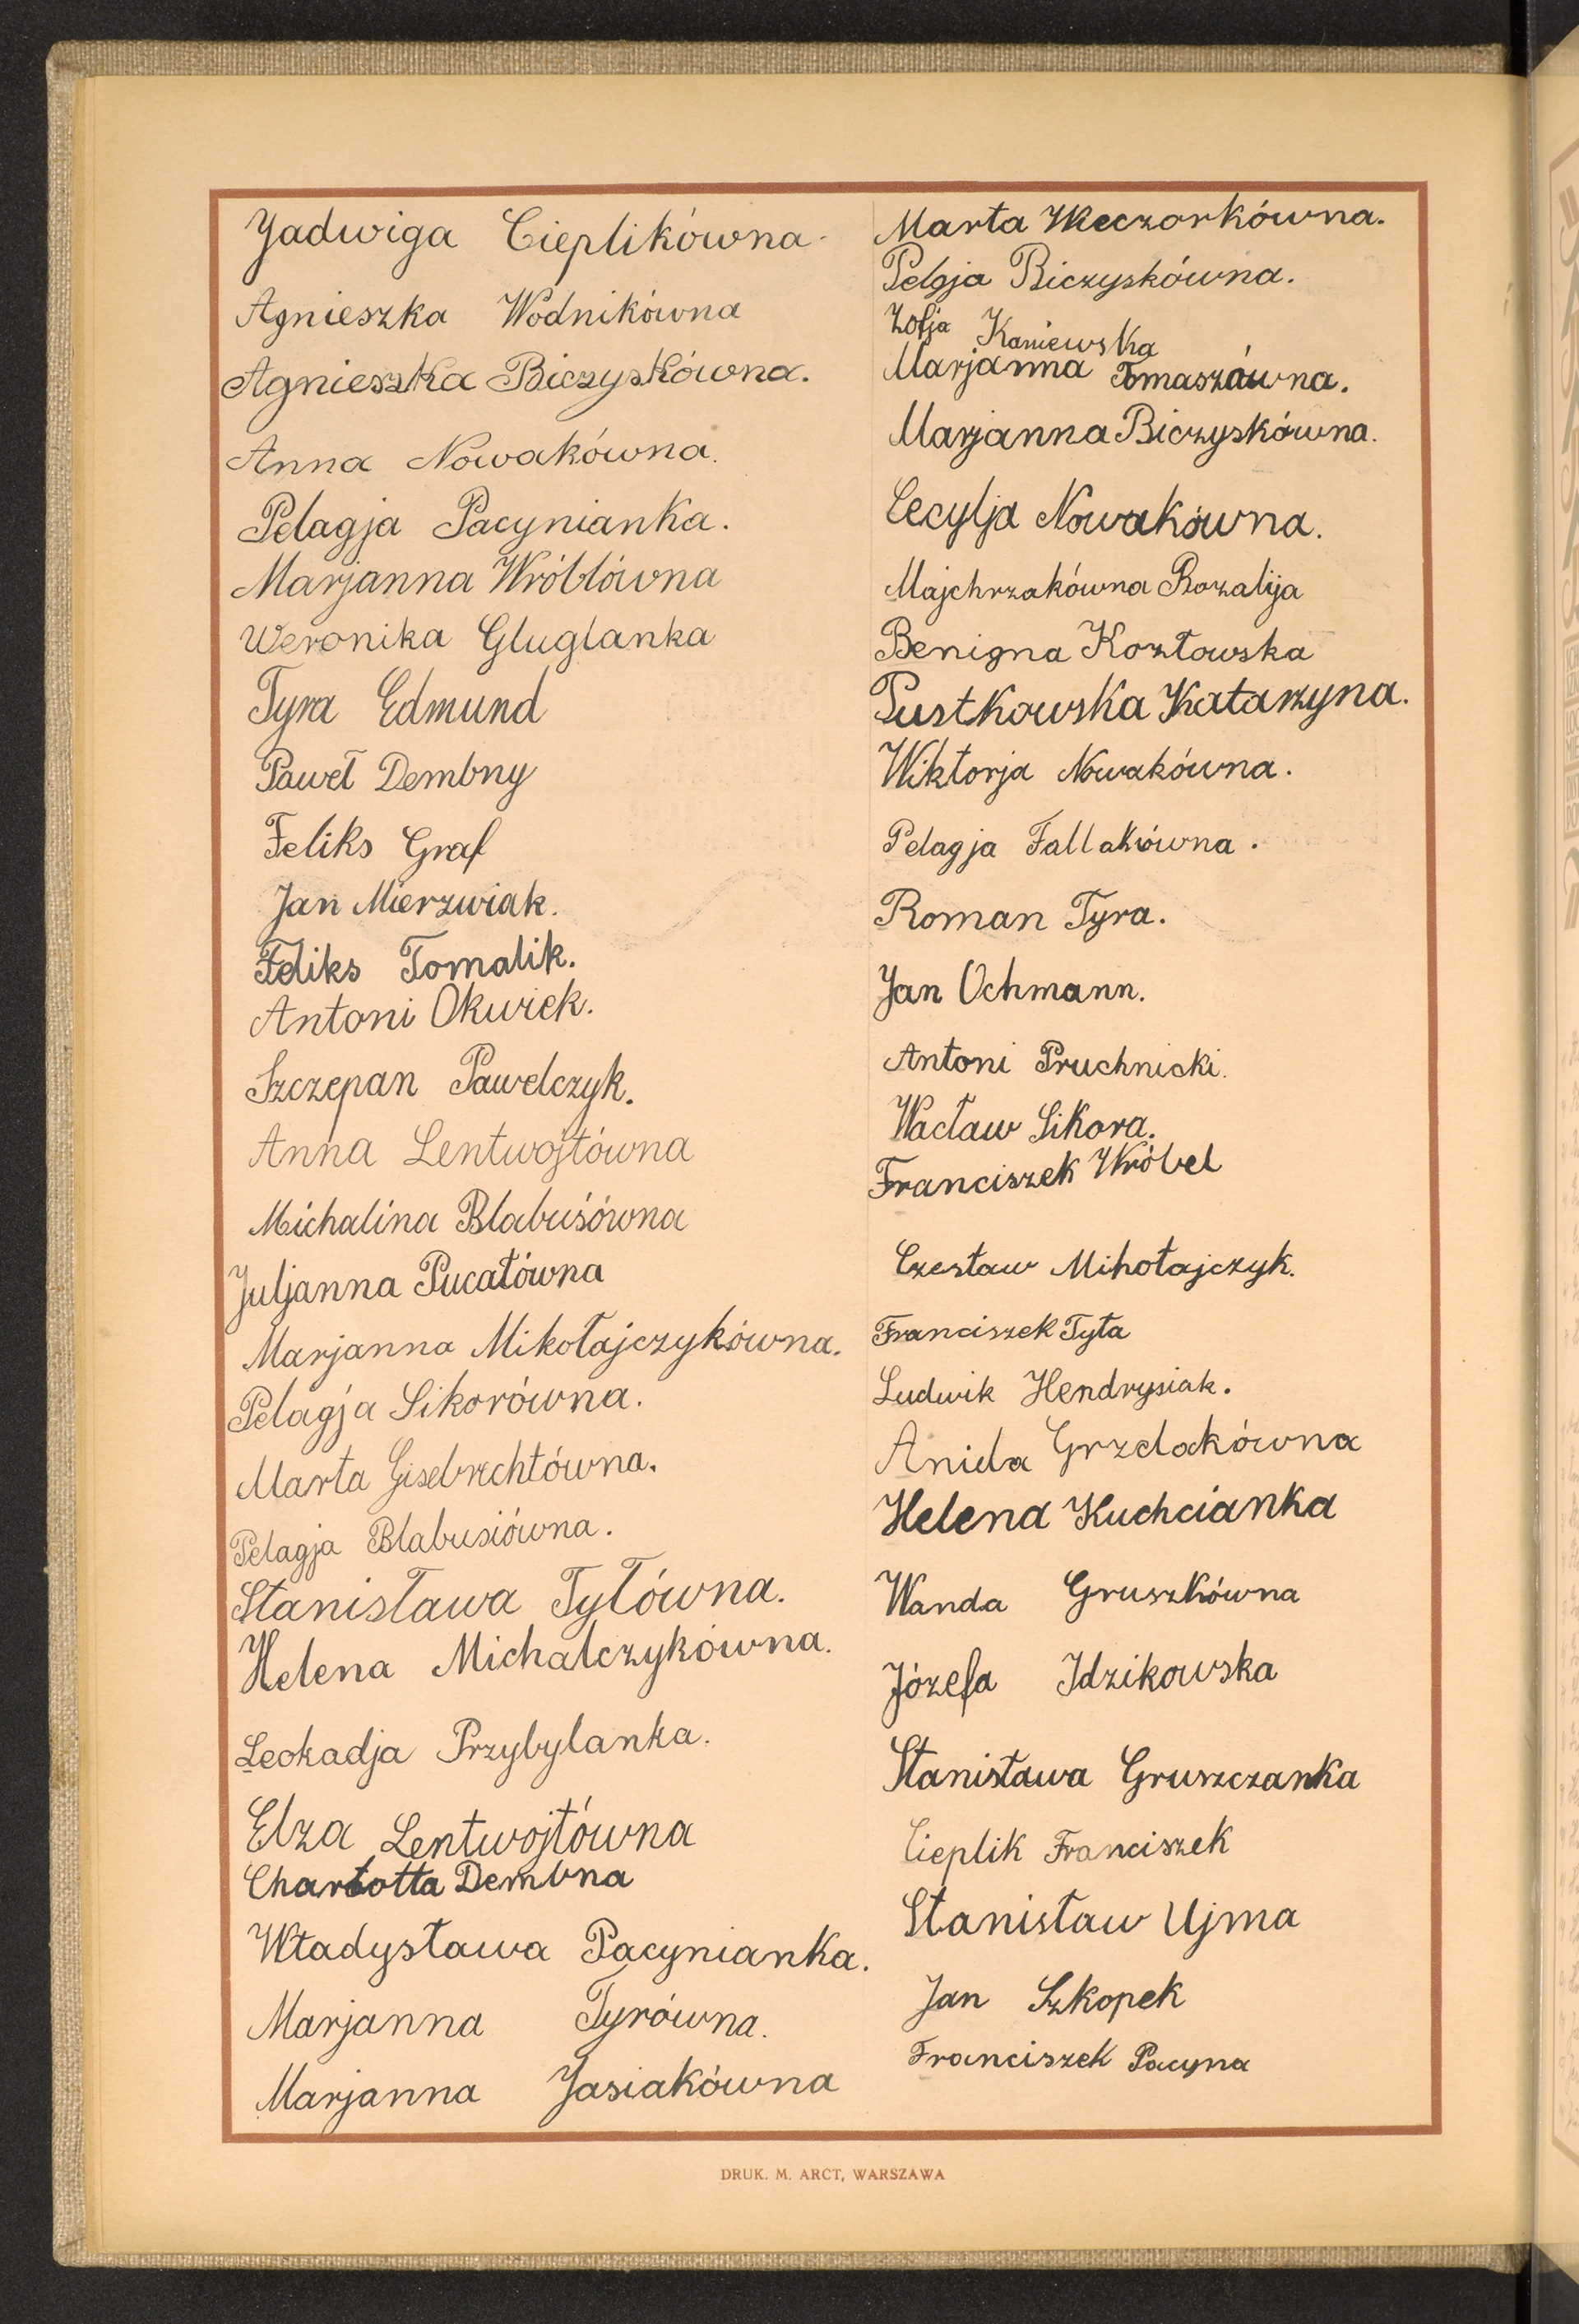 Jadwiga Cieplikówna
Agnieszka Wodnikówna
Agnieszka Biczyskówna.
Anna Nowakówna.
Pelagja Pacynianka.
Marjanna Wróblówna
Weronika Gluglanka
Tyra Edmund
Paweł Dembny
Feliks Graf
Jan Mierzwiak.
Feliks Tomalik.
Antoni Okwiek.
Szczepan Pawelczyk.
Anna Lentwojtówna
Michalina Blabuśówna
Juljanna Pucałówna
Marjanna Mikołajczykówna.
Pelagja Sikorówna.
Marta Gisebrechtówna.
Pelagja Blabusiówna.
Stanisława Tyłówna.
Helena Michalczykówna.
Leokadja Przybylanka.
Elza Lentwojtówna
Charlotta Dembna
Władysława Pacynianka.
Marjanna Tyrówna.
Marjanna Jasiakówna
Marta Wieczorkówna.
Pelgja Biczyskówna.
Zofja Kaniewska
Marjanna Tomaszówna.
Marjanna Biczyskówna.
Cecylja Nowakówna.
Majchrzakówna Rozalija
Benigna Kozłowska
Pustkowska Katarzyna.
Wiktorja Nowakówna.
Pelagja Fallakówna.
Roman Tyra.
Jan Ochmann.
Antoni Pruchnicki.
Wacław Sikora.
Franciszek Wróbel
Czesław Mihołajczyk.
Franciszek Tyła
Ludwik Hendrysiak.
Aniela Grzelakówna
Helena Kuchcianka
Wanda Gruszkówna
Józefa Idzikowska
Stanisława Gruszczanka
Cieplik Franciszek
Stanisław Ujma
Jan Szkopek
Franciszek Pacyna
DRUK. M. ARCT, WARSZAWA